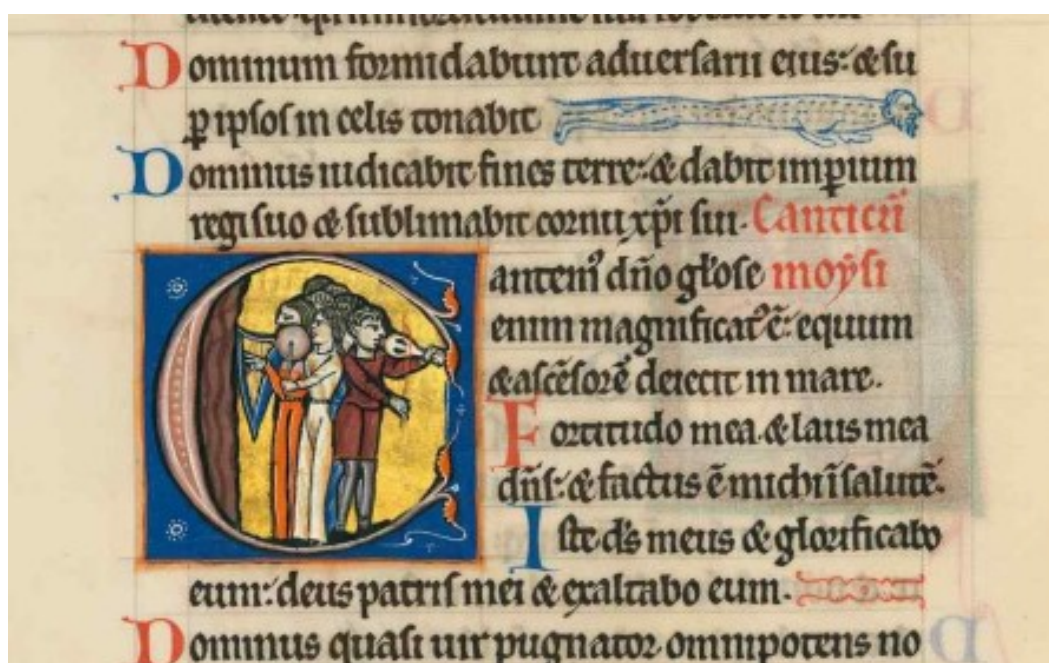 Dominum formidabunt aduersarii eius: & su
p̄ ipsos in celis tonabit
Dominus iudicabit fines terre: & dabit imp̄ium
regi suo & sublimabit cornu xp̄i sui. Canticū
Cantem᷒ dn̄o gl̓ose moẏsi
enim magnificat᷒ ē: equum
& ascēsorē deiecit in mare.
Fortitudo mea & laus mea
dn̄s: & factus ē michi ī salutē.
Iste ds̄ meus & glorificabo
eum: deus patris mei & exaltabo eum.
Dominus quasi uir pugnator omnipotens no